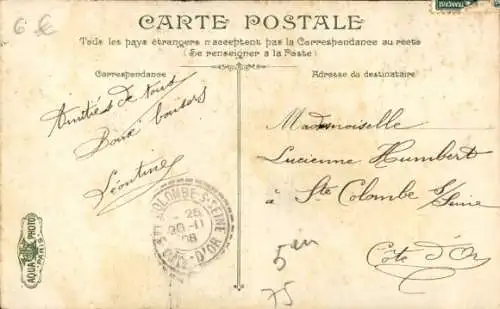 6 €
FRANÇAISE
CARTE POSTALE
Tous les pays étrangers n'acceptent pas la Correspondance au recto
(Se renseigner à la Poste)
Correspondance
Adresse du destinataire
Amitiés de tous
Doux baisers
Léontine
Mademoiselle
Lucienne Humbert
à Ste Colombe s/Seine
Côte d'Or
COLOMBE-S-SEINE
25
20-11
08
CÔTE-D'OR
AQUA PHOTO
PARIS
5
75